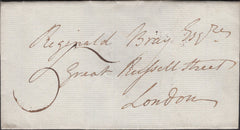 Reginald Bray Esqre
Great Russell Street
London